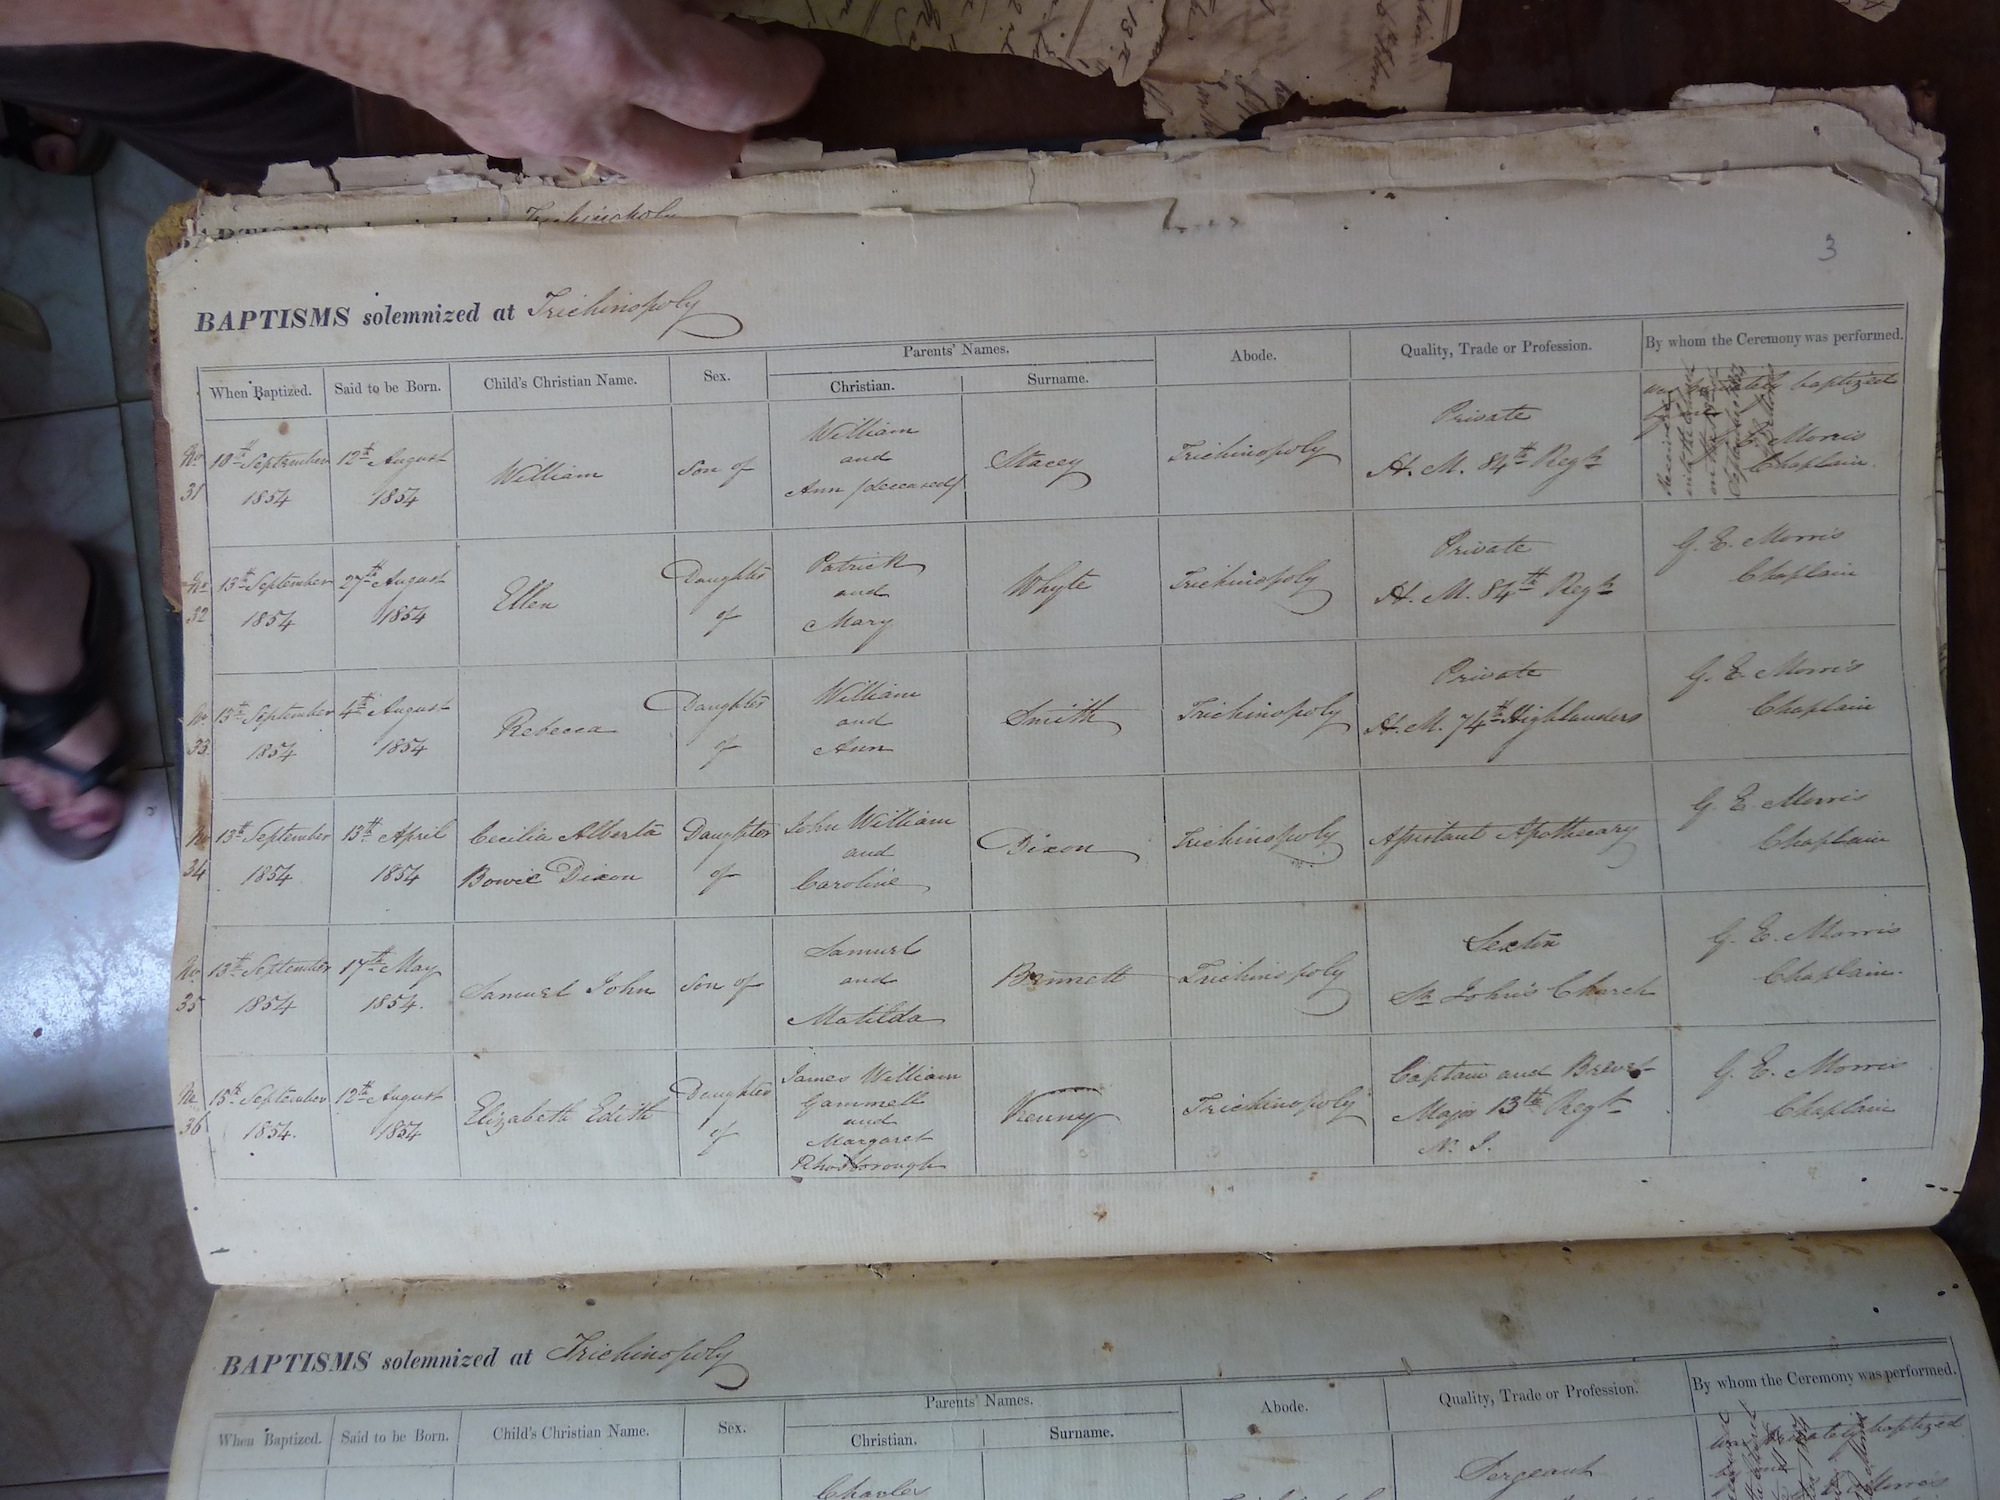 Trichinopoly
3
BAPTISMS solemnized at Trichinopoly
When Baptized. Said to be Born. Child's Christian Name. Sex. Parents' Names. Abode. Quality, Trade or Profession. By whom the Ceremony was performed.
Christian. Surname.
No. 31
10th September 1854
12th August 1854
William
Son of
William
and
Ann (deceased)
Stacey
Trichinopoly
Private
H. M. 84th Regt
baptized
Morris
Chaplain.
No. 32
13th September 1854
27th August 1854
Ellen
Daughter of
Patrick
and
Mary
Whyte
Trichinopoly
Private
H. M. 84th Regt
G. E. Morris
Chaplain
No. 33
13th September 1854
4th August 1854
Rebecca
Daughter of
William
and
Ann
Smith
Trichinopoly
Private
H. M. 74th Highlanders
G. E. Morris
Chaplain
No. 34
13th September 1854
13th April 1854
Cecilia Alberta
Bowie Dixon
Daughter of
John William
and
Caroline
Dixon
Trichinopoly
Assistant Apothecary
G. E. Morris
Chaplain
No. 35
13th September 1854
17th May 1854.
Samuel John
Son of
Samuel
and
Matilda
Bennett
Trichinopoly
Sexton
St John's Church
G. E. Morris
Chaplain.
No. 36
15th September 1854.
12th August 1854
Elizabeth Edith
Daughter of
James William
Gammell
and
Margaret
Kenny
Trichinopoly
Captain and Brevet
Major 13th Regt
N. I.
G. E. Morris
Chaplain
BAPTISMS solemnized at Trichinopoly
When Baptized. Said to be Born. Child's Christian Name. Sex. Parents' Names. Abode. Quality, Trade or Profession. By whom the Ceremony was performed.
Christian. Surname.
Charles
Sergeant
was privately baptized